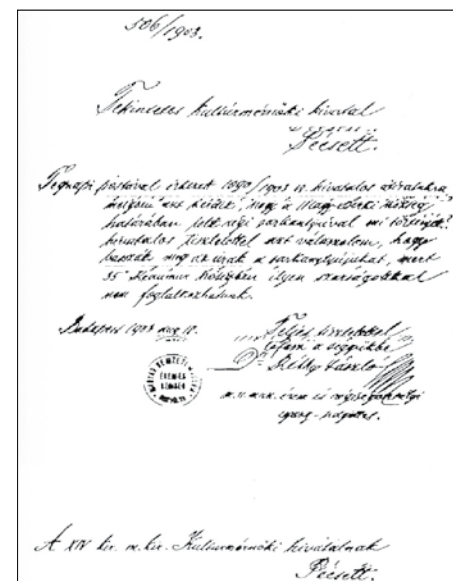 506/1903.
Tekintetes Kulturmérnöki hivatal
Pécsett.
Tegnapi postával érkezett 1090/1903 sz. hivatalos átiratukra,
melyben azt kérdik, hogy a Nagy- község
határában lelt régi sarkantyúval mi történjék?
hivatalos tisztelettel azt válaszolom, hogy
basszák meg az urak a sarkantyújukat, mert
35° Réaumur hőségben ilyen szarságokkal
nem foglalkozhatunk.
Budapest 1903 aug 10.
Teljes tisztelettel
a seggükbe
Dr Réthy László
m. n. muz. érem és régiségosztályi
igazg.
MAGYAR NEMZETI
ÉREM ÉS
A XIV ker. m. kir. Kulturmérnöki hivatalnak
Pécsett.